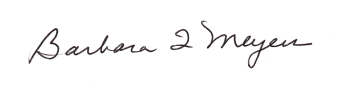 Barbara J Meyer